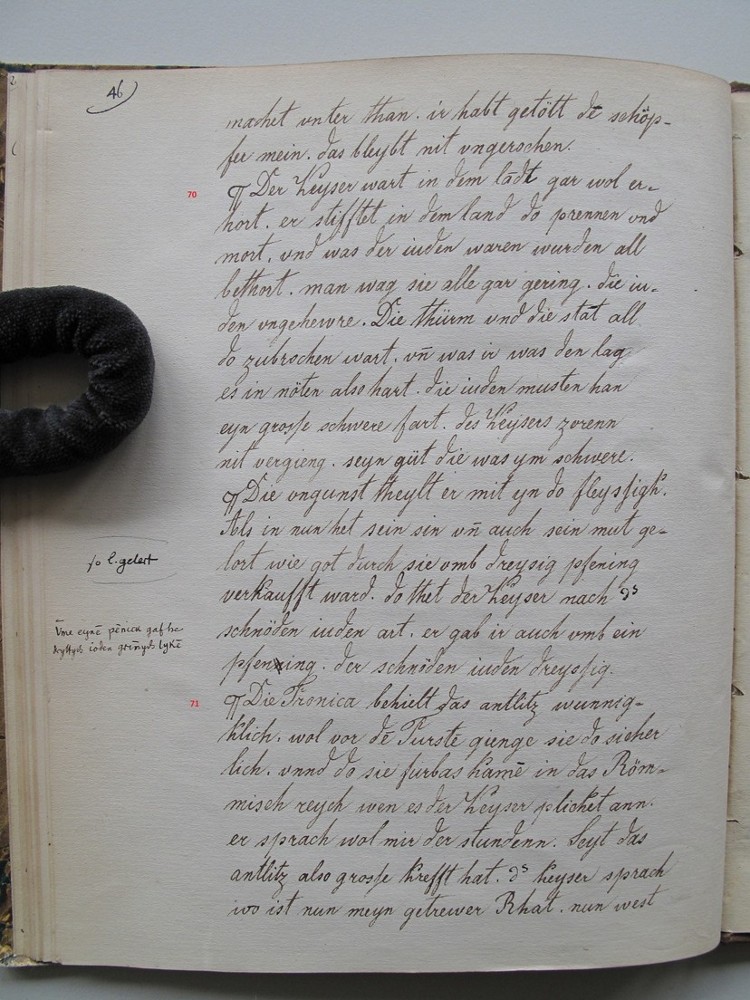 46
machet vnter than. ir habt getött dē schöp-
fer mein. das bleybt nit vngerochen.
70
¶ Der Keyser wart in dem lādt gar wol er-
hort. er stifftet in dem land do prennen vnd
mort, vnd was der iuden waren wurden all
bethort. man wag sie alle gar gering. die iu-
den vngehewre. Die thürm vnd die stat all
do zubrochen wart. vn̄ was ir was den lag
es in nöten also hart. die iuden musten han
eyn grosse schwere fart. des Keysers zorenn
nit vergieng. seyn güt die was ym schwere.
¶ Die vngunst theylt er mit yn do fleyssigk.
Als in nun het sein sin vn̄ auch sein mut ge-
lort wie got durch sie vmb dreysig pfening
so l. gelert
verkaufft ward. do thet der Keyser nach ds
schnöden iuden art. er gab ir auch vmb ein
Vme eynē pēnick gaf he
pfening. der schnöden iuden dreyssig.
71
¶ Die Fronica behielt das antlitz wunnig-
klich. wol vor dē Furste gienge sie do sicher
lich. vnnd do sie furbas kamē in das Röm-
misch reych wen es der Keyser plicket ann.
er sprach wol mir der stundenn. Seyt das
antlitz also grosse krefft hat. ds keyser sprach
wo ist nun meyn getrewer Rhat. nun west